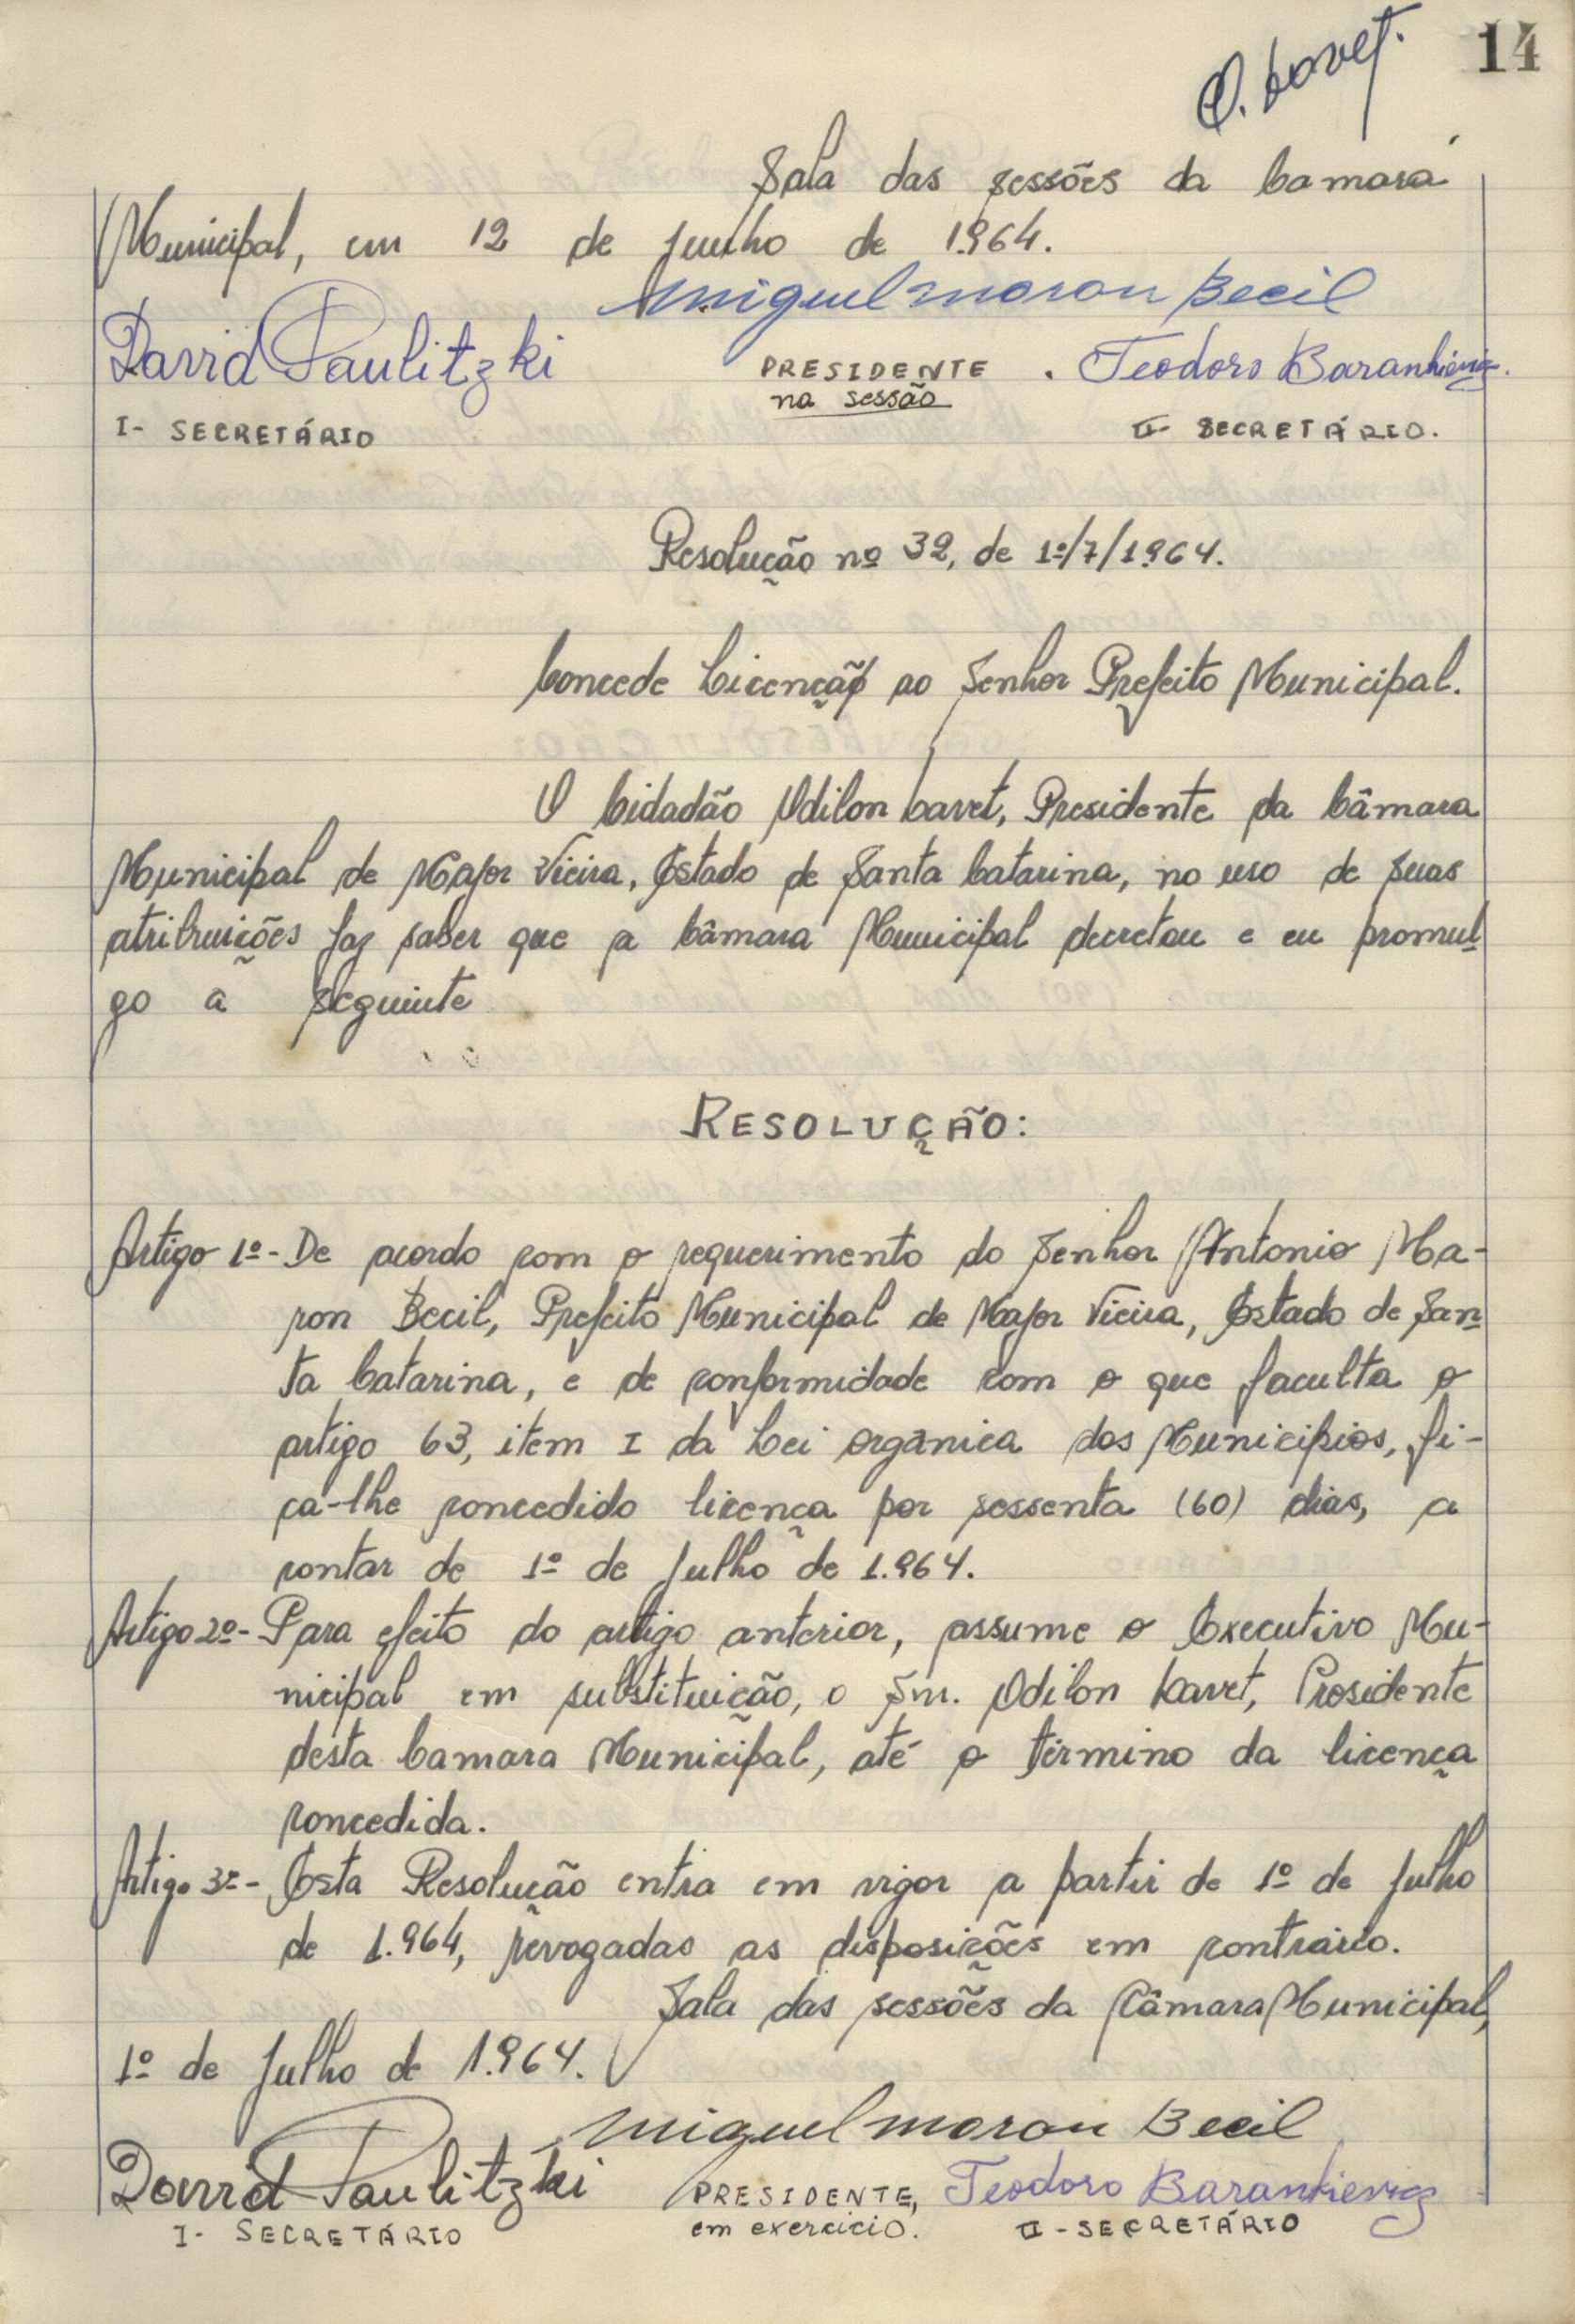 O. Davet. 14
Sala das sessões da Camara
Municipal, em 12 de Junho de 1.964.
Miguel Maron Becil
David Paulitzki PRESIDENTE . Teodoro Barankievicz.
na sessão
I- SECRETÁRIO II- SECRETÁRIO.
Resolução nº 32, de 1º/7/1.964.
Concede Licença ao Senhor Prefeito Municipal.
O Cidadão Odilon Davet, Presidente da Câmara
Municipal de Major Vieira, Estado de Santa Catarina, no uso de suas
atribruições faz saber que a Câmara Municipal decretou e eu promul
go a seguinte
RESOLUÇÃO:
Artigo 1º- De acordo com o requerimento do Senhor Antonio Ma-
ron Becil, Prefeito Municipal de Major Vieira, Estado de San
ta Catarina, e de conformidade com o que faculta o
artigo 63, item I da Lei organica dos Municipios, fi-
ca-lhe concedido licença por sessenta (60) dias, a
contar de 1º de Julho de 1.964.
Artigo 2º- Para efeito do artigo anterior, assume o Executivo Mu-
nicipal em substituição, o Snr. Odilon Davet, Presidente
desta Camara Municipal, até o término da licença
concedida.
Artigo 3º- Esta Resolução entra em vigor a partir de 1º de Julho
de 1.964, revogadas as disposições em contrário.
Sala das sessões da Câmara Municipal,
1º de Julho de 1.964.
Miguel Maron Becil
David Paulitzki PRESIDENTE, Teodoro Barankievicz
I- SECRETÁRIO em exercicio. II-SECRETÁRIO